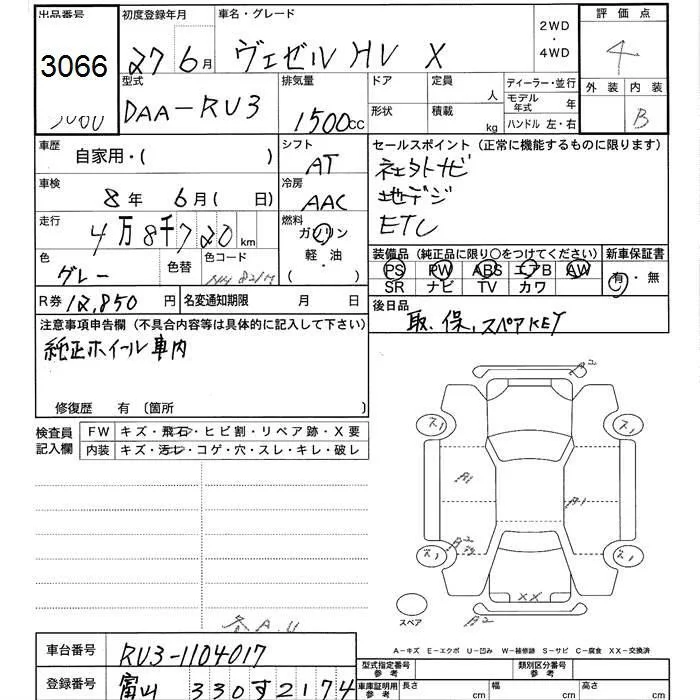 出品番号 初度登録年月 車名・グレード 2WD・4WD 評価点
3066 27年6月 ヴェゼル HV X 4
型式 排気量 ドア 定員 人 ディーラー・並行 外装 内装
DAA-RU3 1500cc 形状 積載 kg モデル年式 年 B
ハンドル 左・右
車歴 自家用・( ) シフト AT セールスポイント (正常に機能するものに限ります)
車検 8年 6月( 日) 冷房 AAC 社外ナビ
地デジ
走行 4万8千720km 燃料 ガソリン ETC
軽・油
( )
色 グレー 色替 色コード
装備品 (純正品に限り○をつけてください) 新車保証書
PS PW ABS エアB AW 有・無
SR ナビ TV カワ
R券 12,850円 名変通知期限 月 日 後日品
取、保、スペアKEY
注意事項申告欄 (不具合内容等は具体的に記入して下さい)
純正ホイール車内
修復歴 有〔箇所 〕
検査員記入欄 FW キズ・飛石・ヒビ割・リペア跡・X要
内装 キズ・汚レ・コゲ・穴・スレ・キレ・破レ
A2
ス1 ス1
A1 A1
A2
ス1 ス1
XX
スペア A2
A-キズ E-エクボ U-凹み W-補修跡 S-サビ C-腐食 XX-交換済
車台番号 RU3-1104017
型式指定番号 参考 類別区分番号 参考
登録番号 富山 330す2174
車庫証明用 参考 長さ cm 幅 cm 高さ cm